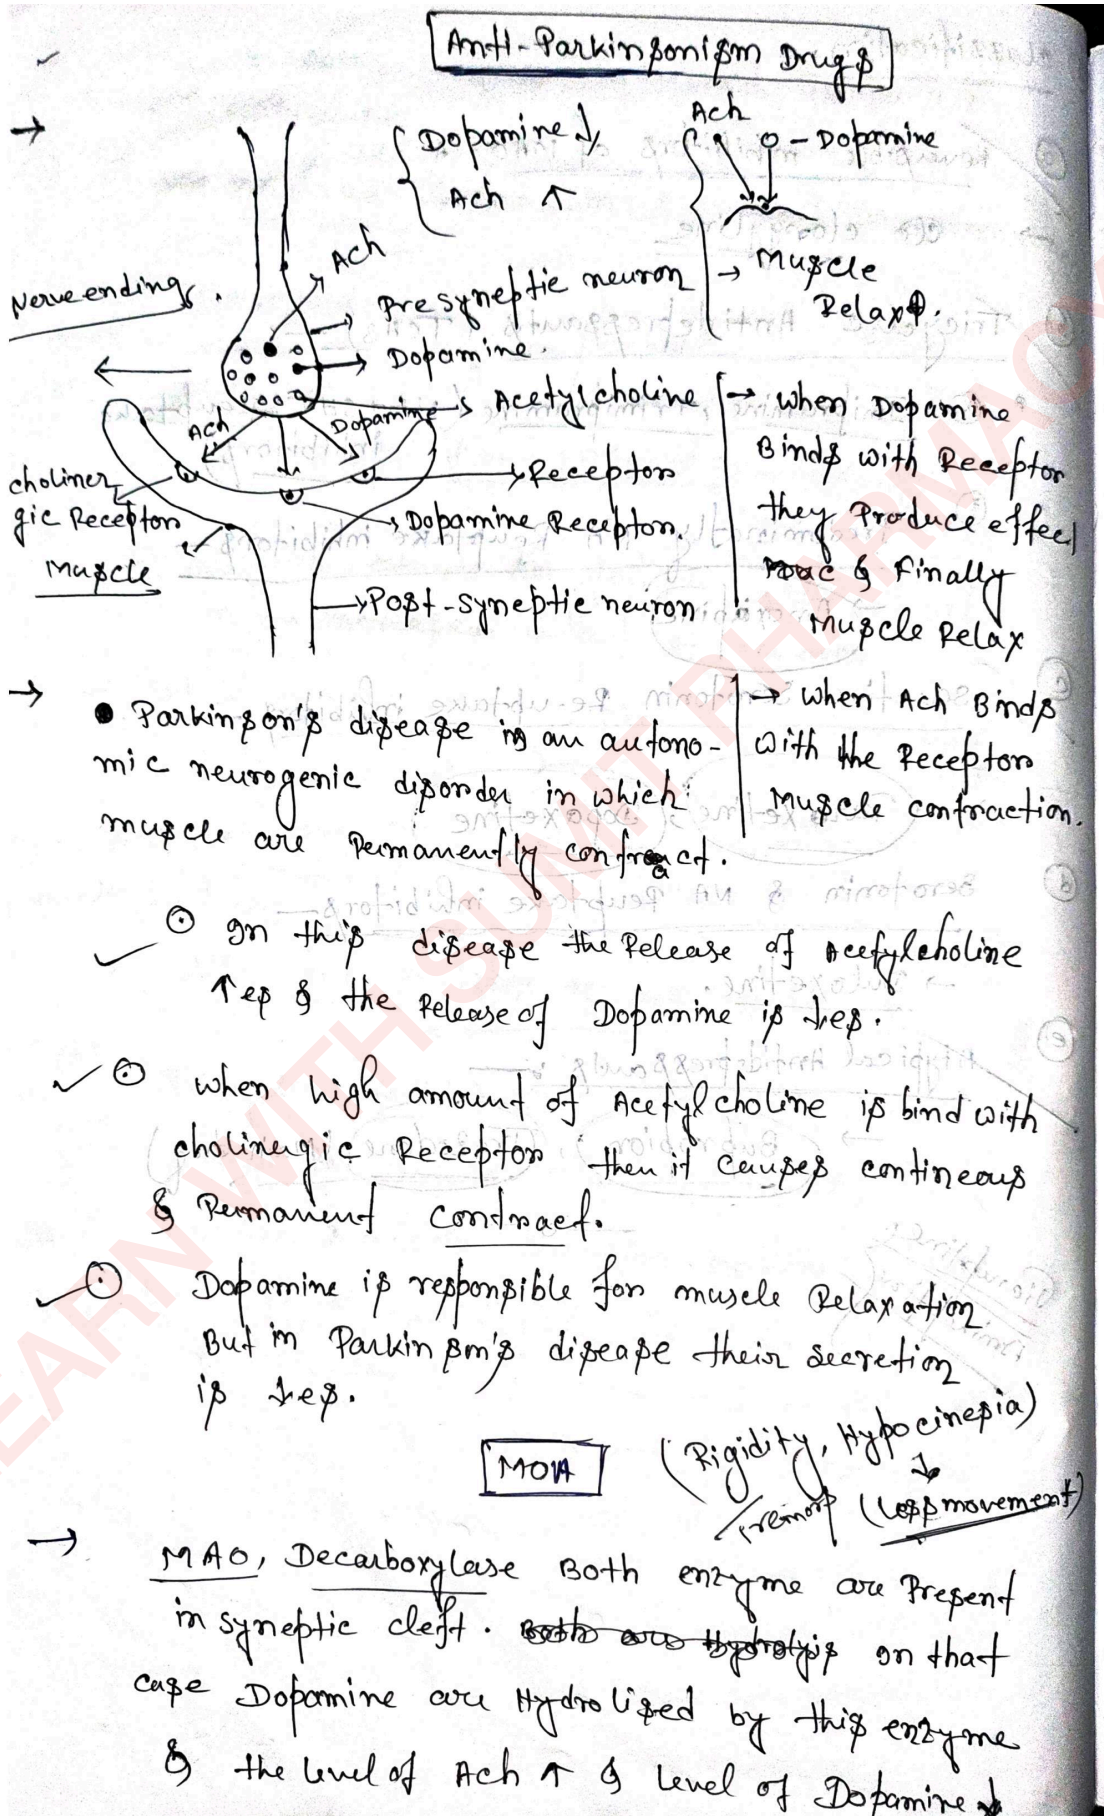 Anti-Parkinsonism Drugs
Dopamine ↓,
Ach ↑
Ach
- Dopamine
→ Muscle
Relax.
Nerve ending
Ach
Presyneptic neuron
Dopamine.
Acetylcholine
Ach
Dopamine
Receptor
choliner
gic Receptor
Dopamine Receptor.
Muscle
Post-syneptic neuron
→ when Dopamine
Binds with Receptor
they Produce effect
& Finally
Muscle Relax
→ when Ach Binds
with the Receptor
Muscle contraction.
→ • Parkinson's disease is an autono-
mic neurogenic disorder in which
muscle are Permanently contract.
⊙ In this disease the Release of Acetylcholine
↑es & the Release of Dopamine is ↓es.
⊙ when high amount of Acetylcholine is bind with
cholinergic Receptor then it causes contineous
& Permanent Contract.
⊙ Dopamine is responsible for muscle Relaxation
But in Parkinson's disease their secretion
is ↓es.
MOA
(Rigidity, Hypocinesia)
Tremors (Less movement)
→ MAO, Decarboxylase Both enzyme are Present
in syneptic cleft. Both are Hydrolysis In that
case Dopamine are Hydrolised by this enzyme
& the level of Ach ↑ & level of Dopamine ↓
LEARN WITH SUMIT PHARMACY